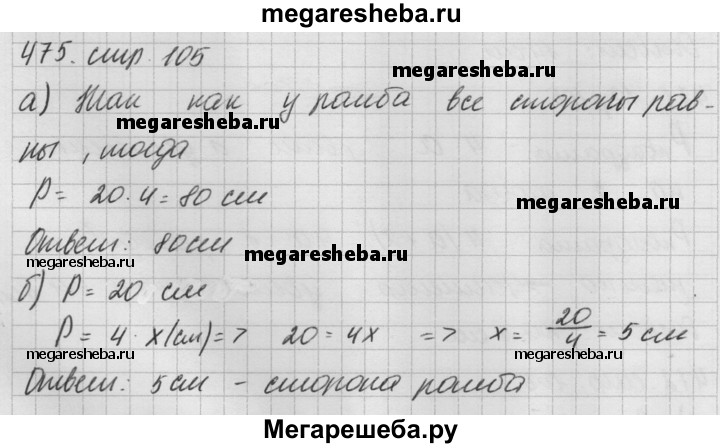 megaresheba.ru
475. стр. 105
megaresheba.ru
а) Так как у ромба все стороны рав-
megaresheba.ru
ны , тогда
P = 20 · 4 = 80 см
megaresheba.ru
Ответ: 80 см
megaresheba.ru
megaresheba.ru
б) P = 20 см
P = 4 · x (см) => 20 = 4x => x = 20/4 = 5 см
megaresheba.ru
megaresheba.ru
Ответ: 5 см - сторона ромба
Мегарешеба.ру